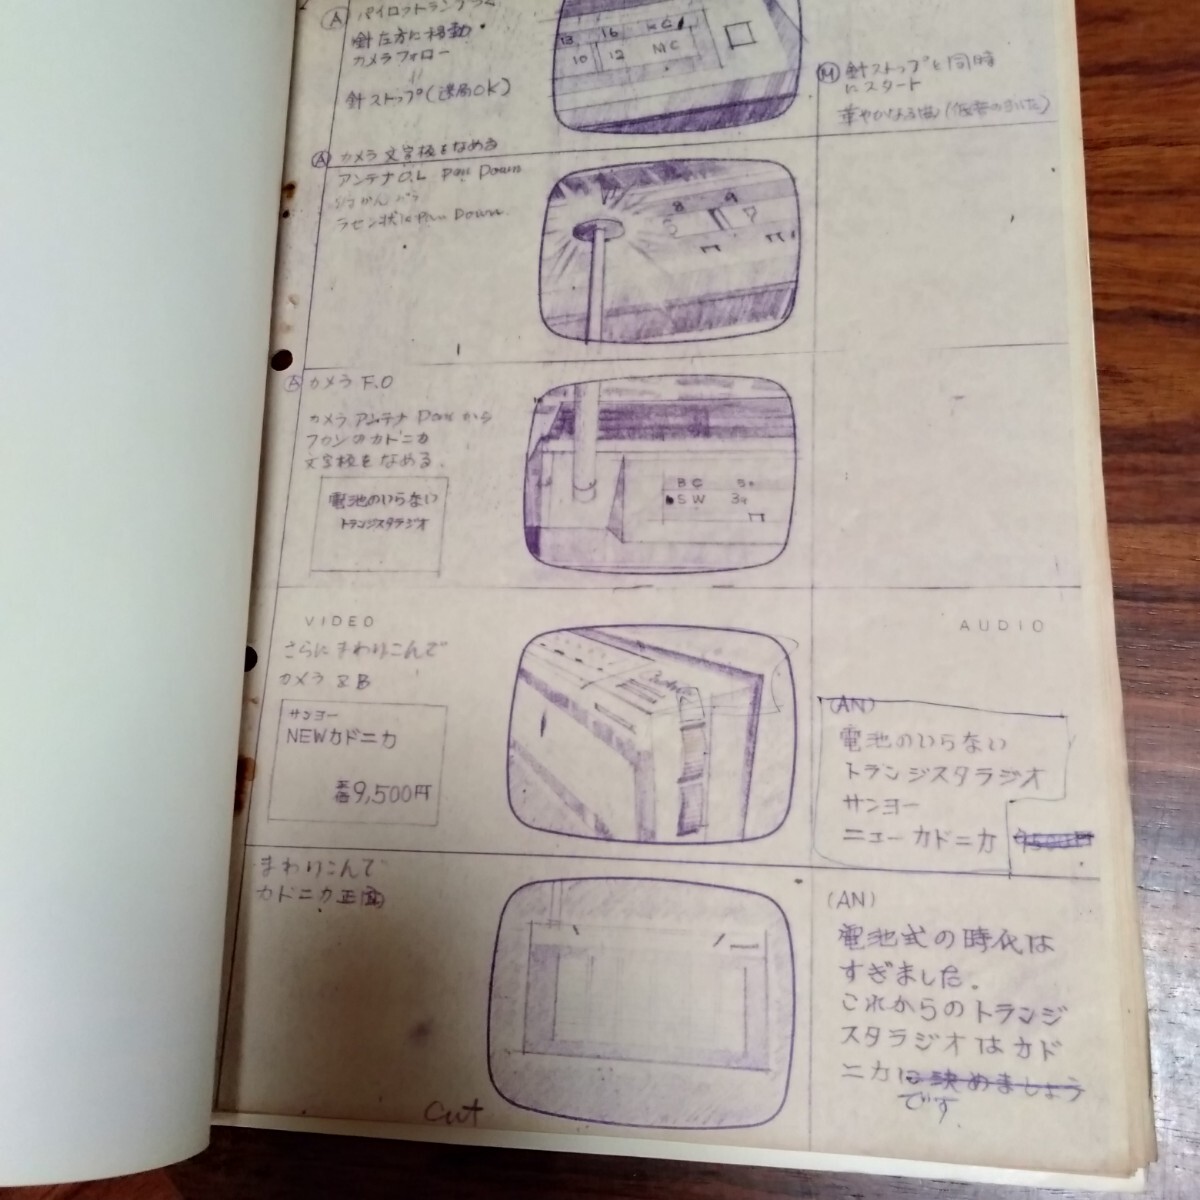 Ⓐ パイロットランプ
針左方に移動
カメラフォロー
針ストップ(選局OK)
13 16 KC
10 12 MC
Ⓜ 針ストップと同時
にスタート
華やかなる曲
Ⓐ カメラ文字板をなめる
アンテナO.L Pan Down
ラセン状に Pan Down
8 9
7
Ⓐ カメラ F.O
カメラアンテナ Down から
フカンのカドニカ
文字板をなめる.
電池のいらない
トランジスタラジオ
BC
SW
VIDEO
AUDIO
さらにまわりこんで
カメラ
サンヨー
NEWカドニカ
9,500円
(AN)
電池のいらない
トランジスタラジオ
サンヨー
ニューカドニカ
まわりこんで
カドニカ正面
(AN)
電池式の時代は
すぎました.
これからのトランジ
スタラジオはカド
ニカに決めましょう
です.
Cut